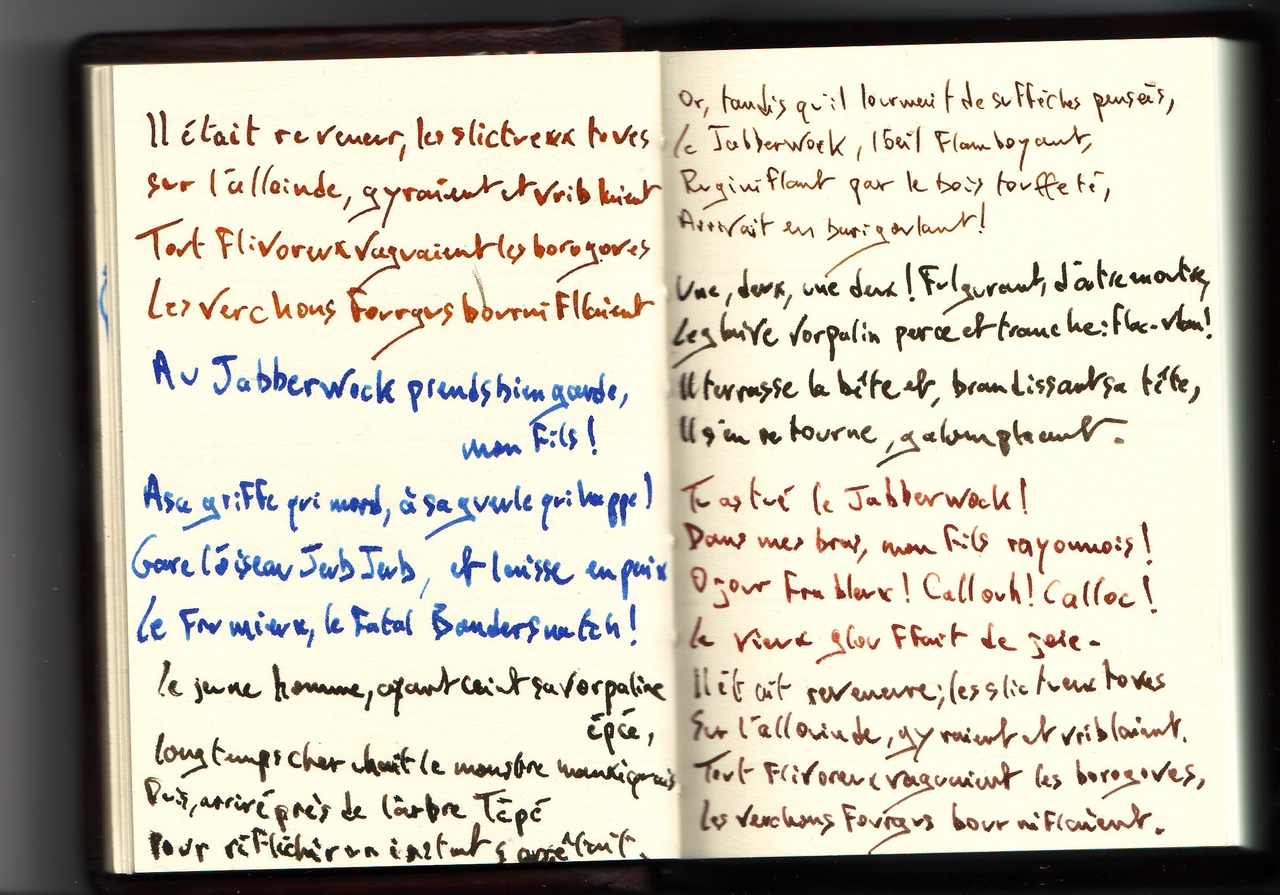 Il était reveneur, les slictveux toves
sur l'alloinde, gyraient et vriblaient
Tout flivoreux vaguaient les borogoves
Les verchons fourgus bourniflaient
Au Jabberwock prends bien garde,
mon fils!
A sa griffe qui mord, à sa gueule qui happe!
Gare l'oiseau JubJub, et laisse en paix
Le frumieux, le fatal Bandersnatch!
le jeune homme, ayant ceint sa vorpaline
épée,
longtemps cherchait le monstre manxiquais
Puis, arrivé près de l'arbre Tépé
Pour réfléchir un instant s'arrêtait.
Or, tandis qu'il lourmait de suffêches pensées,
le Jabberwock, l'oeil flamboyant,
Ruginiflant par le bois touffeté,
Arrivait en burigoulant!
Une, deux, une deux! Fulgurant, d'outre en outre,
Le glaive vorpalin perce et tranche: flac-vlan!
Il terrasse la bête et, brandissant sa tête,
Il s'en retourne, galomphant.
Tu as tué le Jabberwock!
Dans mes bras, mon fils rayonnois!
O jour frableux! Callouh! Calloc!
Le vieux glouffait de joie.
Il était reveneure; les slictueux toves
Sur l'allouinde, gyraient et vriblaient.
Tout flivoreux vaguaient les borogoves,
Les verchons fourgus bourniflaient.